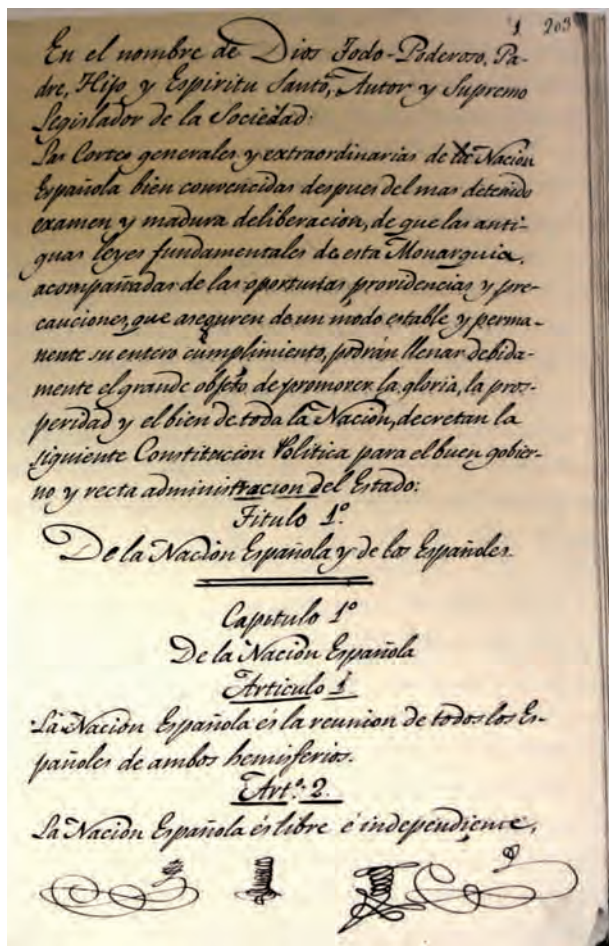 1 203
En el nombre de Dios Todo-Poderoso, Pa-
dre, Hijo y Espiritu Santo, Autor y Supremo
Legislador de la Sociedad:
Las Cortes generales y extraordinarias de la Nacion
Española bien convencidas despues del mas detenido
examen y madura deliberacion, de que las anti-
guas leyes fundamentales de esta Monarquia,
acompañadas de las oportunas providencias y pre-
cauciones, que aseguren de un modo estable y perma-
nente su entero cumplimiento, podrán llenar debida-
mente el grande objeto de promover la gloria, la pros-
peridad y el bien de toda la Nacion, decretan la
siguiente Constitucion Politica para el buen gobier-
no y recta administracion del Estado:
Titulo 1º.
De la Nacion Española y de los Españoles.
Capitulo 1º
De la Nacion Española
Articulo 1
La Nacion Española es la reunion de todos los Es-
pañoles de ambos hemisferios.
Artº. 2.
La Nacion Española es libre é independiente,